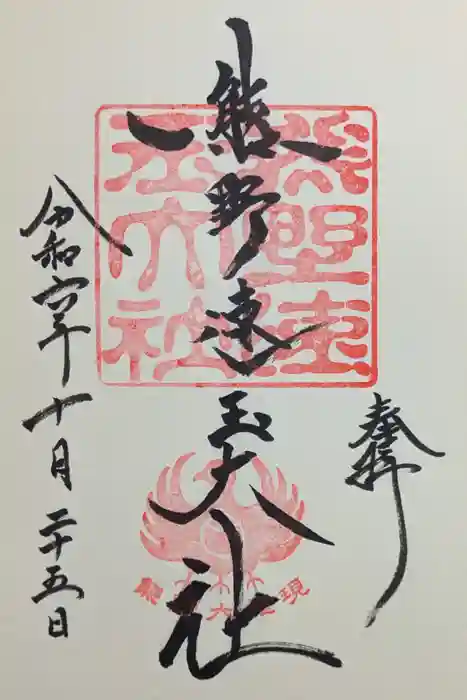 奉拝
熊野速玉大社
令和六年十月二十五日
熊野速
玉大社